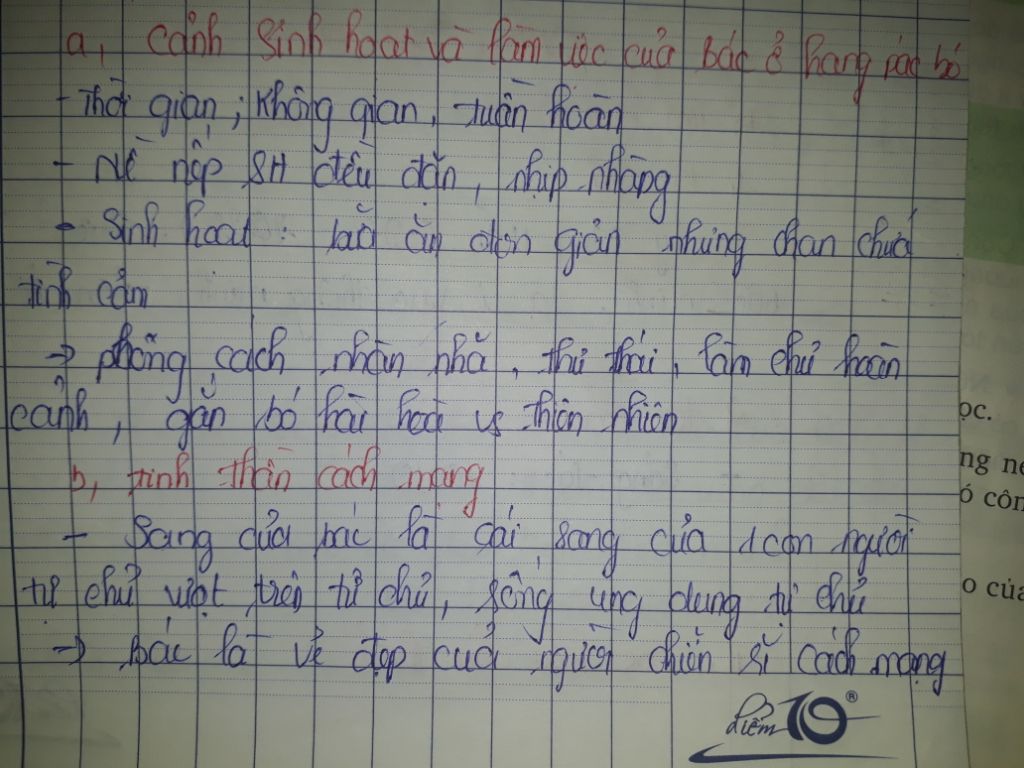 a, cảnh sinh hoạt và làm việc của Bác ở hang pác bó
- Thời gian; không gian, tuần hoàn
- Nề nếp SH đều đặn, nhịp nhàng
- Sinh hoạt: ăn đơn giản nhưng chan chứa
tình cảm
→ phong cách nhàn nhã, thư thái, làm chủ hoàn
cảnh, gắn bó hài hoà vs thiên nhiên
b, tinh thần cách mạng
- Sang của bác là cái sang của 1 con người
tự chủ vượt trên tự chủ, sống ung dung tự chủ
→ Bác là vẻ đẹp của người chiến sĩ cách mạng
điểm 10 ®
ọc.
ng
ó côn
o của